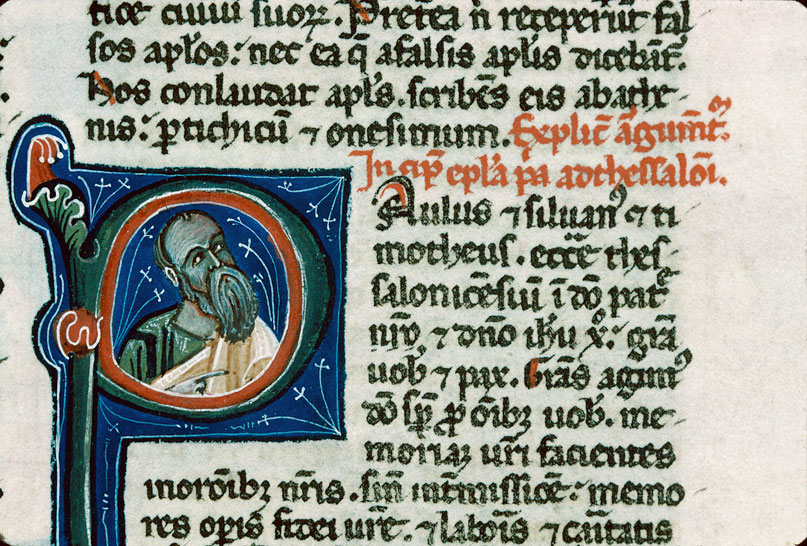 tioe ciuiū suoꝝ. Pretea n̄ receperūt fal
sos apl̄os: nec ea q̄ a falsis apl̄is dicebāt̄.
Hos conlaudat apl̄s. scribēs eis ab athe-
nis: ꝑ tichicū ⁊ onesimum. Explic̄ āgum̄t̄.
Incip̄ epl̄a p̄a ad thessalōi.
Aulus ⁊ siluan᷒ ⁊ ti
motheus. eccē thes-
salonicēsiū ī dō patr̄
nr̄o, ⁊ dn̄o ih̄u x̄: gr̄a
uob̄ ⁊ pax. Gr̄as agim᷒
dō sp̄ ꝓ ōibꝫ uob̄. me-
moriaꝫ ur̄i facientes
in orōibꝫ nr̄is. sīn int̄missiōe: memo
res op̄is fidei ur̄e. ⁊ labōis ⁊ cāitatis